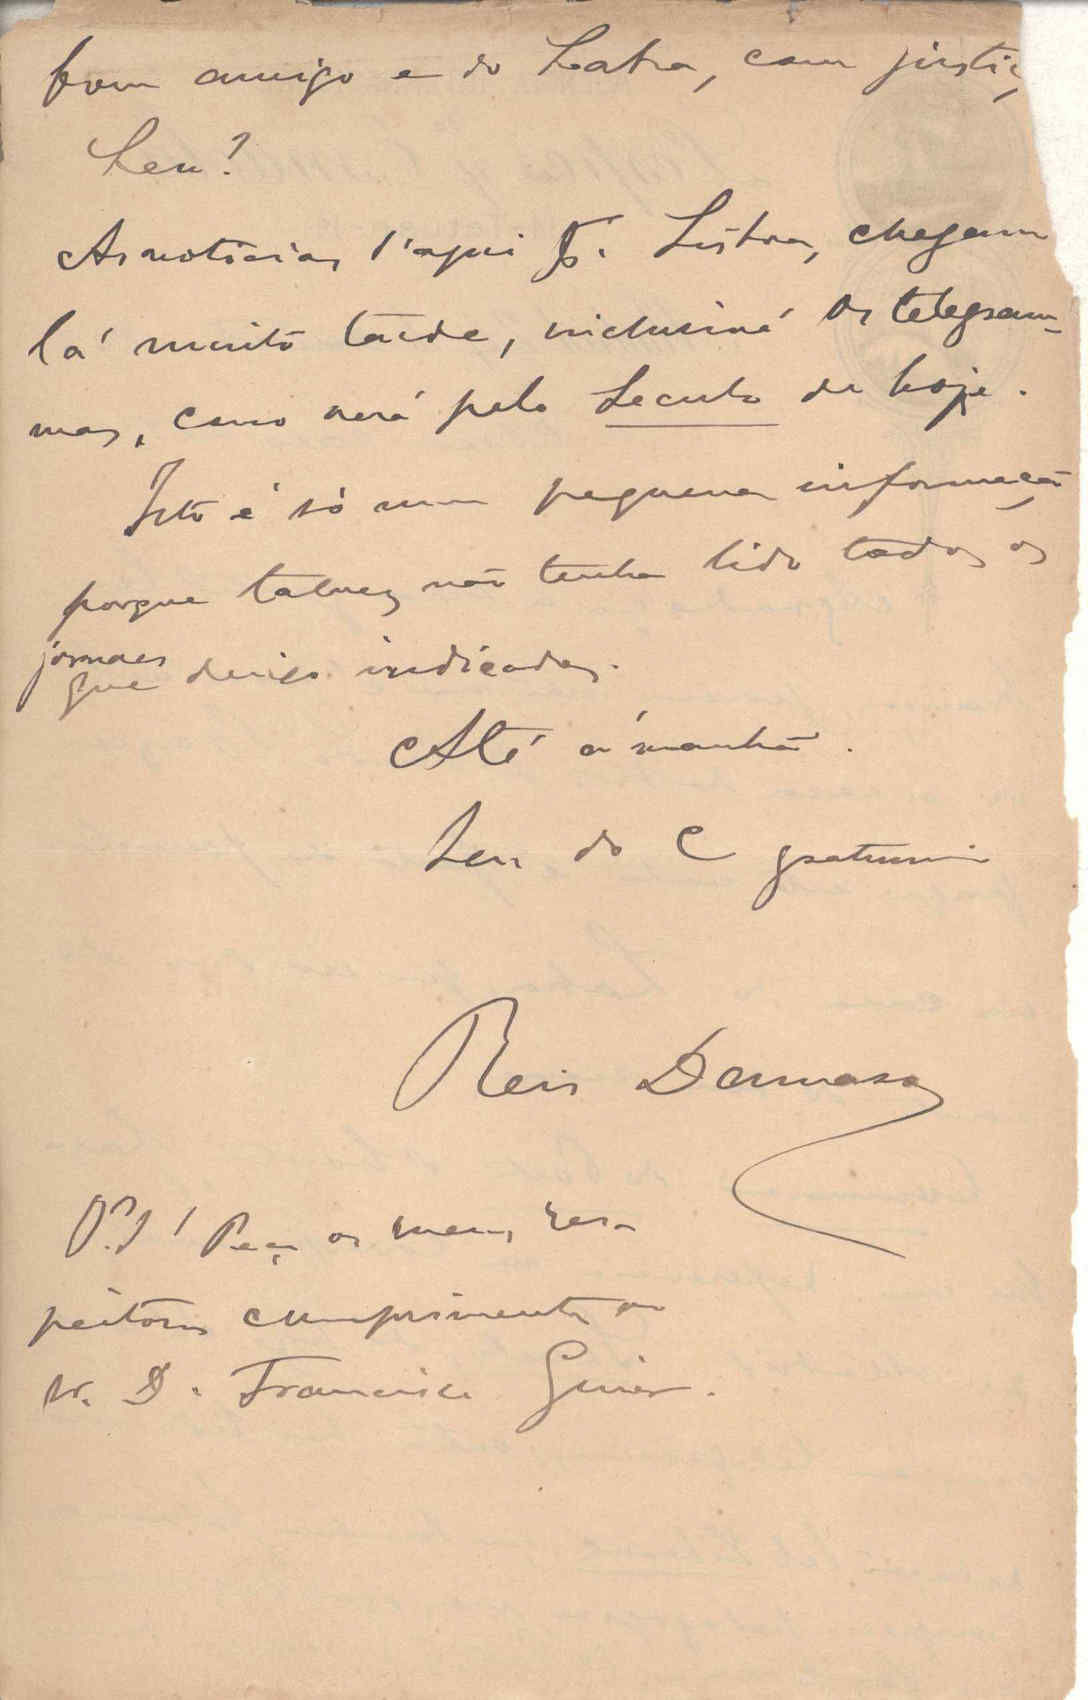 bom amigo e do Labra, com justiç
Leu?
As noticias d'aqui p.ª Lisboa, chegam
lá muito tarde, inclusivé os telegram-
mas, como verá pelo Seculo de hoje.
Isto é só uma pequena informaçã
porque talvez não tenha lido todos os
jornaes
que deixo indicados.
Até á manhã.
Seu do C
Reis Damaso
P.S! Peço os meus res-
peitosos cumprimentos ao
sr. D. Francisco Giner.